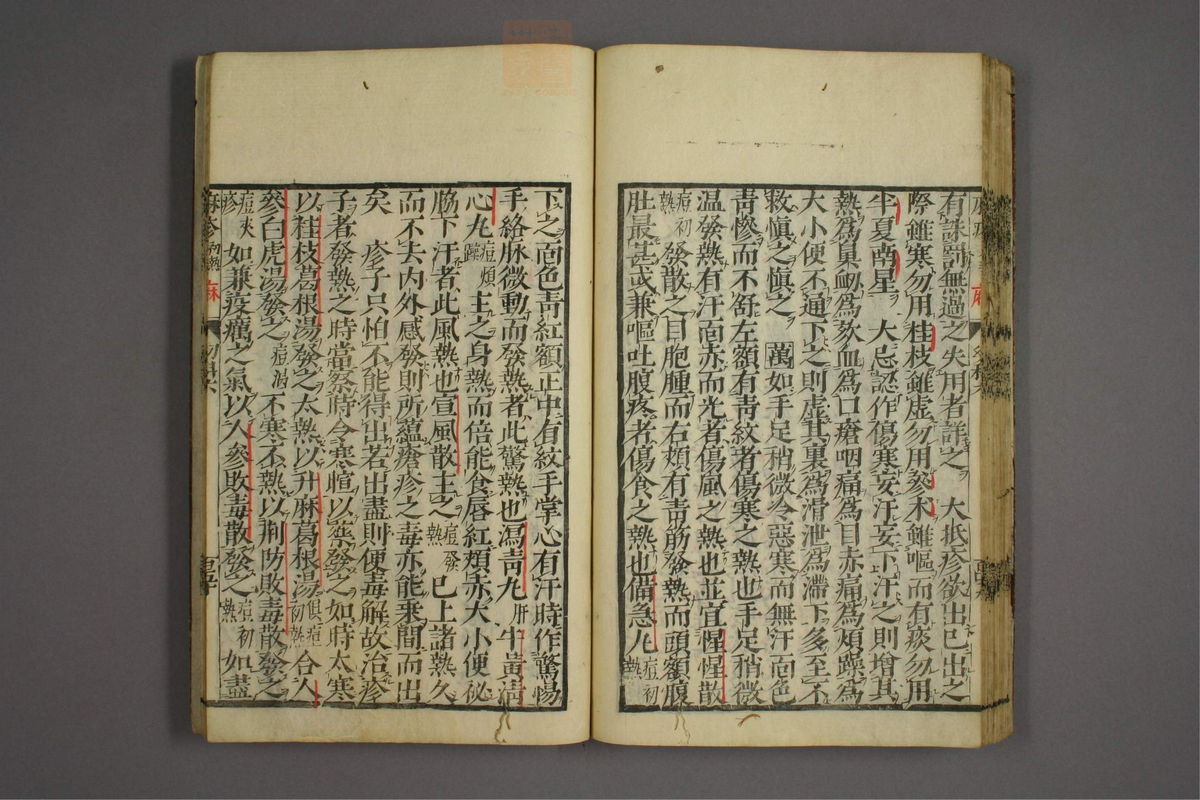 有誅罰無過之失用者詳之 大抵疹欲出已出之
際雖寒勿用桂枝雖虛勿用參朮雖嘔而有痰勿用
半夏南星 大忌認作傷寒妄汗妄下汗之則增其
熱爲鼻衂爲欬血爲口瘡咽痛爲目赤痛爲煩躁爲
大小便不通下之則虛其裏爲滑泄爲滯下多至不
救愼之愼之 萬如手足稍微冷惡寒而無汗面色
靑慘而不舒左額有靑紋者傷寒之熱也手足稍微
温發熱有汗面赤而光者傷風之熱也並宜惺惺散
痘初熱 發散之目胞腫而右頰有靑筋發熱而頭額腹
肚最甚或兼嘔吐腹疼者傷食之熱也備急丸 痘初熱
下之面色靑紅額正中有紋手掌心有汗時作驚惕
手絡脉微動而發熱者此驚熱也瀉靑丸 肝 牛黃淸
心丸 痘煩躁 主之身熱而倍能食唇紅頰赤大小便祕
脇下汗者此風熱也宣風散主之 痘發熱 已上諸熱久
而不去内外感發則所蘊瘡疹之毒亦能乘間而出
矣 疹子只怕不能得出若出盡則便毒解故治疹
子者發熱之時當察時令寒暄以藥發之如時太寒
以桂枝葛根湯發之太熱以升麻葛根湯 俱痘初熱 合人
參白虎湯發之 痘渴 不寒不熱以荆防敗毒散發之
痘夾疹 如兼疫癘之氣以人參敗毒散發之 痘初熱 如盡
麻疹初熱 麻